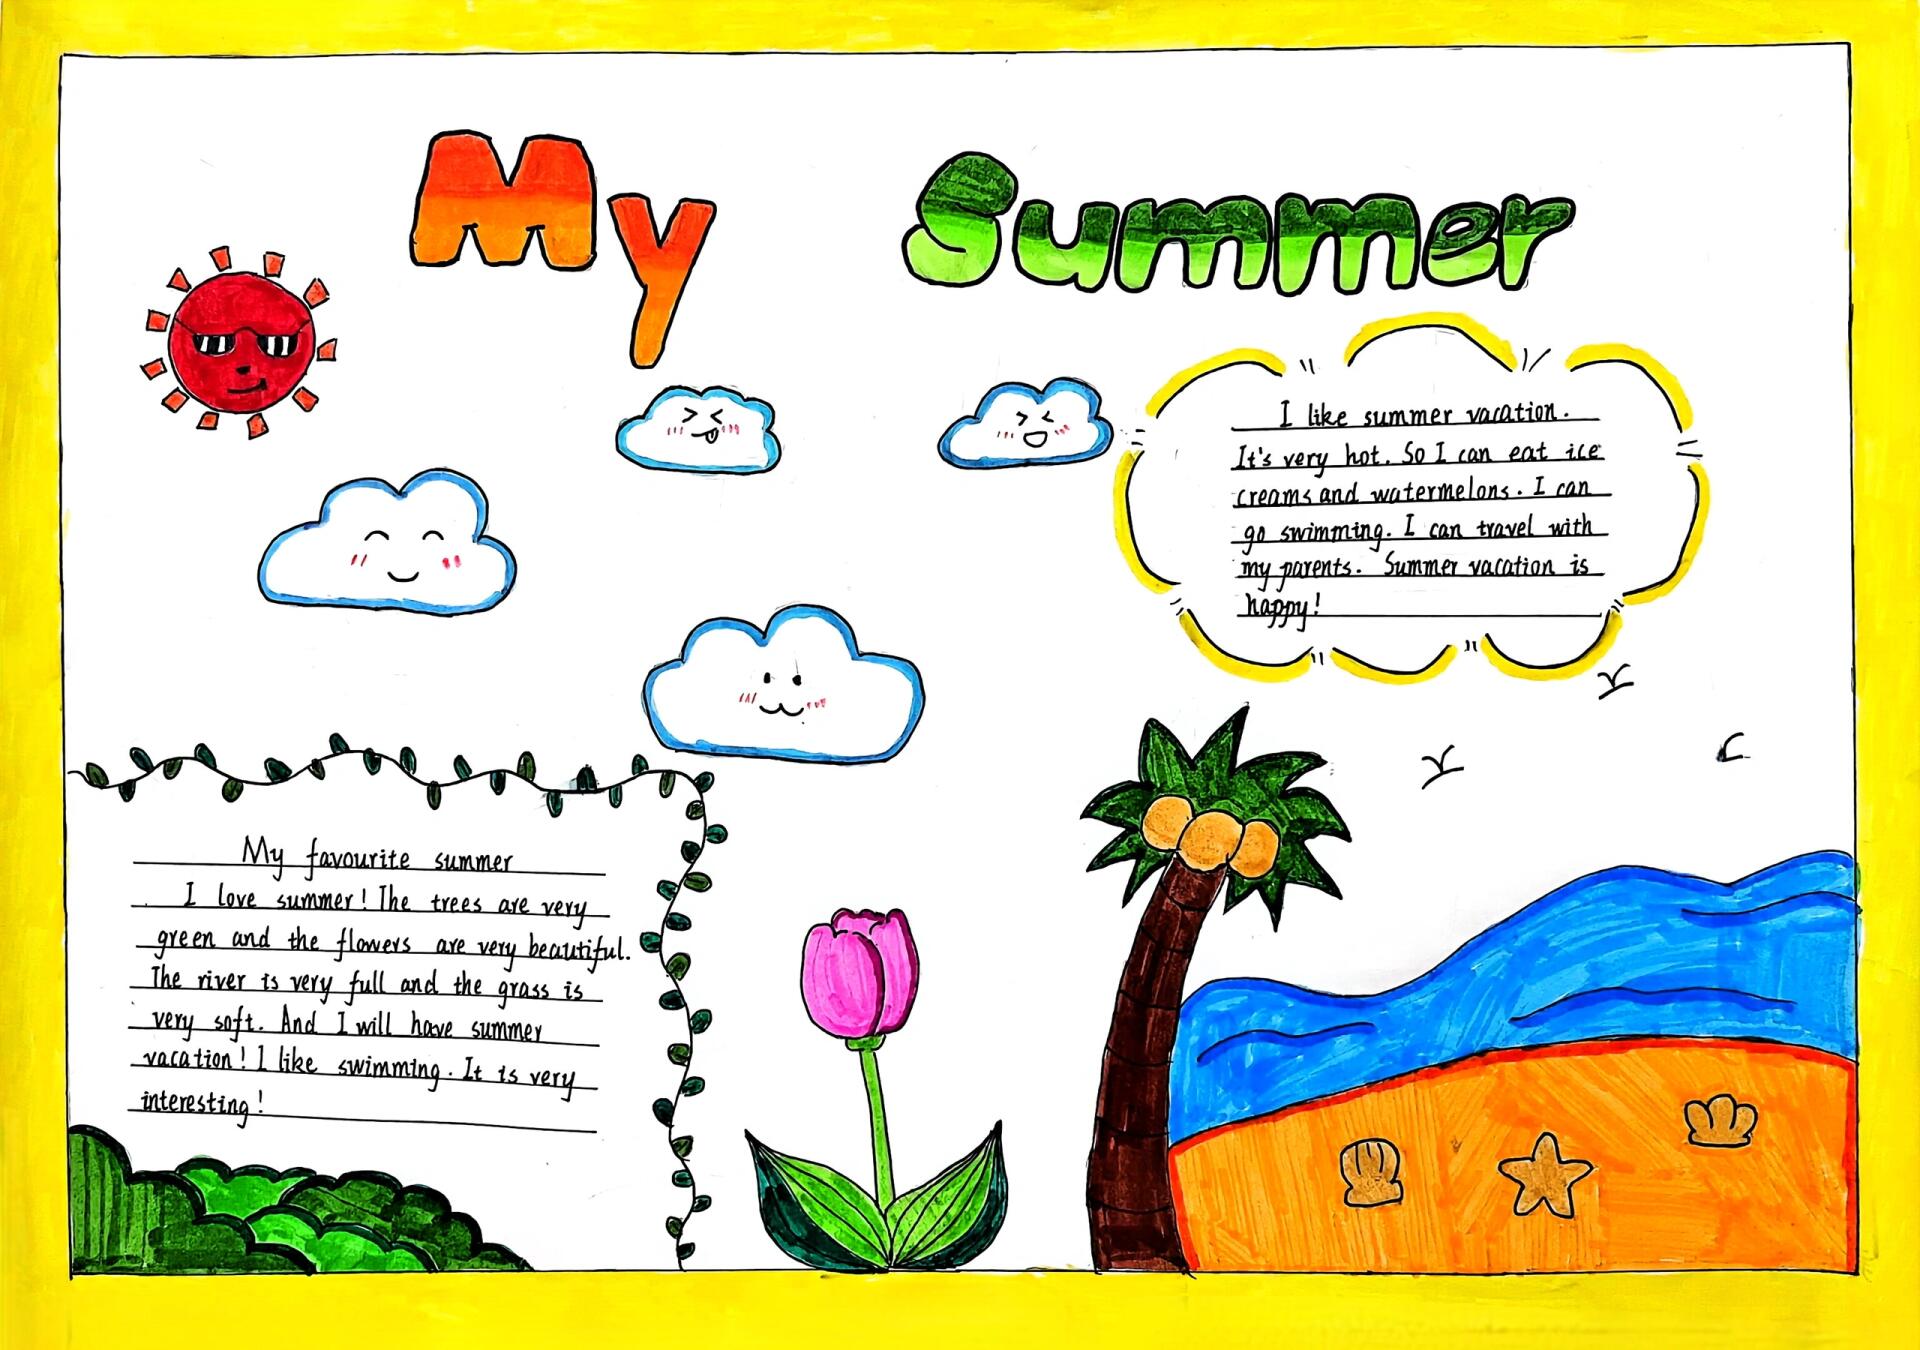 My Summer
I like summer vacation.
It's very hot. So I can eat ice
creams and watermelons. I can
go swimming. I can travel with
my parents. Summer vacation is
happy!
My favourite summer
I love summer! The trees are very
green and the flowers are very beautiful.
The river is very full and the grass is
very soft. And I will have summer
vacation! I like swimming. It is very
interesting!